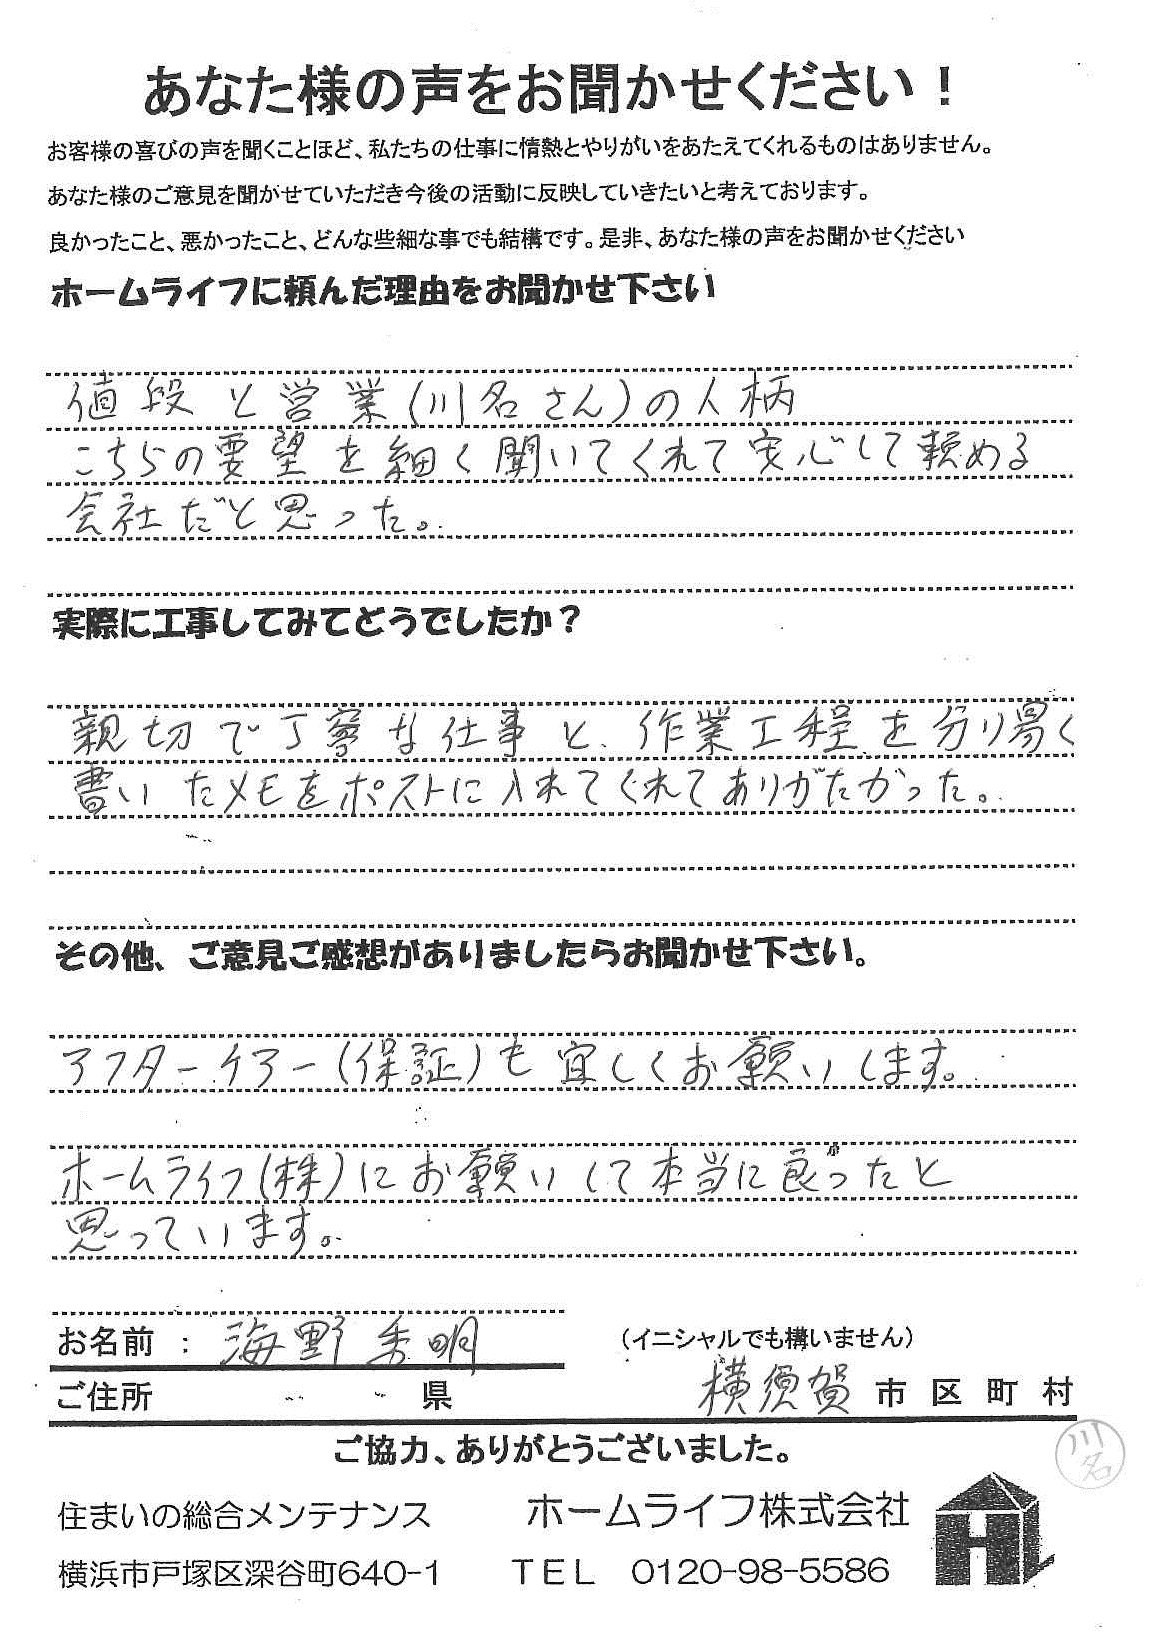 あなた様の声をお聞かせください！
お客様の喜びの声を聞くことほど、私たちの仕事に情熱とやりがいをあたえてくれるものはありません。
あなた様のご意見を聞かせていただき今後の活動に反映していきたいと考えております。
良かったこと、悪かったこと、どんな些細な事でも結構です。是非、あなた様の声をお聞かせください
ホームライフに頼んだ理由をお聞かせ下さい
値段と営業(川名さん)の人柄
こちらの要望を細く聞いてくれて安心して頼める
会社だと思った。
実際に工事してみてどうでしたか？
親切で丁寧な仕事と、作業工程を分り易く
書いたメモをポストに入れてくれてありがたかった。
その他、ご意見ご感想がありましたらお聞かせ下さい。
アフターケアー(保証)も宜しくお願いします。
ホームライフ(株)にお願いして本当に良かったと
思っています。
お名前：海野秀明 （イニシャルでも構いません）
ご住所 県 横須賀 市区町村
ご協力、ありがとうございました。
川名
住まいの総合メンテナンス ホームライフ株式会社
横浜市戸塚区深谷町640-1 TEL 0120-98-5586
HL